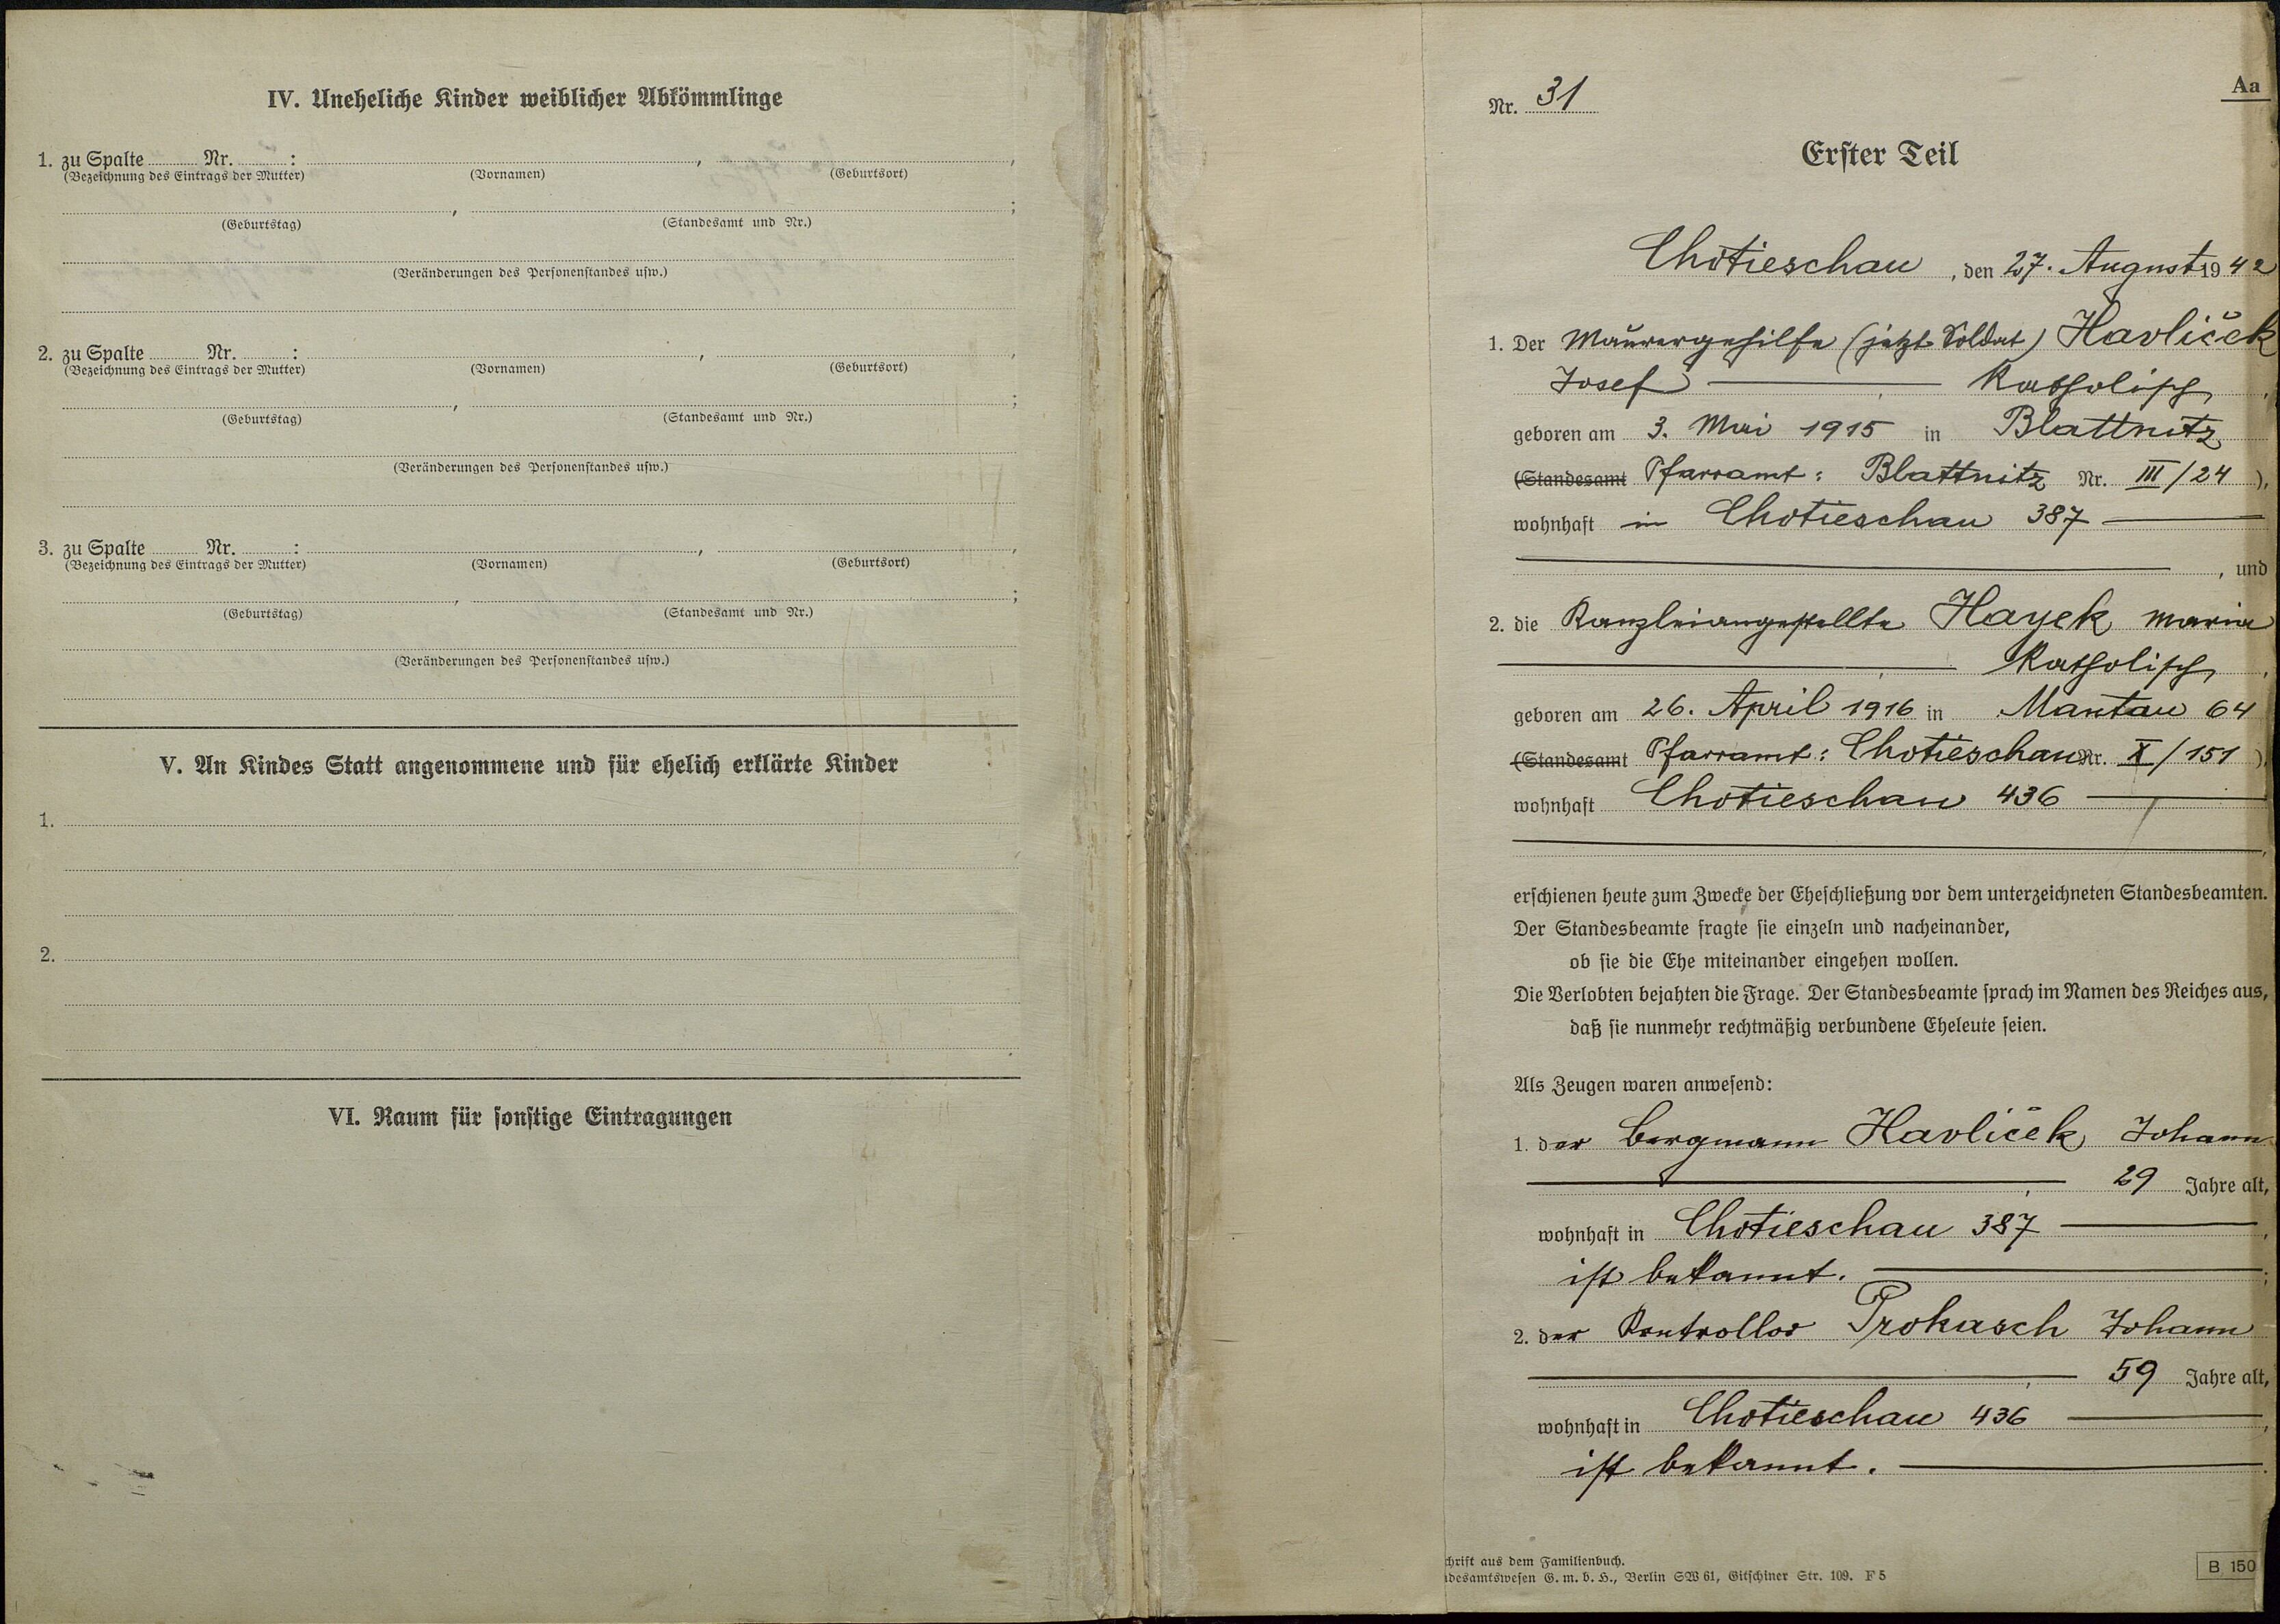 IV. Uneheliche Kinder weiblicher Abkömmlinge
1. zu Spalte Nr. : , ,
(Bezeichnung des Eintrags der Mutter) (Vornamen) (Geburtsort)
, ;
(Geburtstag) (Standesamt und Nr.)
(Veränderungen des Personenstandes usw.)
2. zu Spalte Nr. : , ,
(Bezeichnung des Eintrags der Mutter) (Vornamen) (Geburtsort)
, ;
(Geburtstag) (Standesamt und Nr.)
(Veränderungen des Personenstandes usw.)
3. zu Spalte Nr. : , ,
(Bezeichnung des Eintrags der Mutter) (Vornamen) (Geburtsort)
, ;
(Geburtstag) (Standesamt und Nr.)
(Veränderungen des Personenstandes usw.)
V. An Kindes Statt angenommene und für ehelich erklärte Kinder
1.
2.
VI. Raum für sonstige Eintragungen
Aa
Nr. 31
Erster Teil
Chotieschau, den 27. August 1942
1. Der Maurergehilfe (jetzt Soldat) Havliček
Josef, Katholisch,
geboren am 3. Mai 1915 in Blattnitz
(Standesamt Pfarramt: Blattnitz Nr. III/24),
wohnhaft in Chotieschau 387
, und
2. die Kanzleiangestellte Hayek Maria
, Katholisch,
geboren am 26. April 1916 in Mantau 64
(Standesamt Pfarramt: Chotieschau Nr. X/151),
wohnhaft Chotieschau 436
,
erschienen heute zum Zwecke der Eheschließung vor dem unterzeichneten Standesbeamten.
Der Standesbeamte fragte sie einzeln und nacheinander,
ob sie die Ehe miteinander eingehen wollen.
Die Verlobten bejahten die Frage. Der Standesbeamte sprach im Namen des Reiches aus,
daß sie nunmehr rechtmäßig verbundene Eheleute seien.
Als Zeugen waren anwesend:
1. der Bergmann Havliček Johann
, 29 Jahre alt,
wohnhaft in Chotieschau 387,
ist bekannt. ;
2. der Kontrollor Prokasch Johann
, 59 Jahre alt,
wohnhaft in Chotieschau 436,
ist bekannt.
chrift aus dem Familienbuch.
desamtswesen G. m. b. H., Berlin SW 61, Gitschiner Str. 109. F 5
B 150